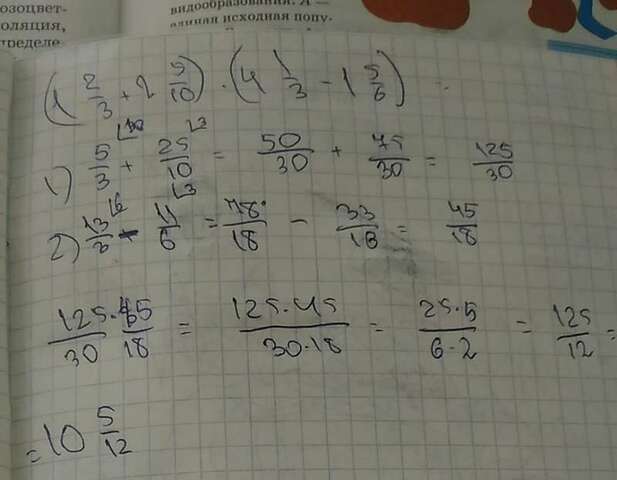 озоцвет-
оляция,
пределе
видообразования. А —
единая исходная попу-
(1 2/3 + 2 5/10) · (4 1/3 - 1 5/6)
1) 5/3 + 25/10 = 50/30 + 75/30 = 125/30
2) 13/3 - 11/6 = 78/18 - 33/18 = 45/18
125·45/30 18 = 125·45/30·18 = 25·5/6·2 = 125/12 =
= 10 5/12